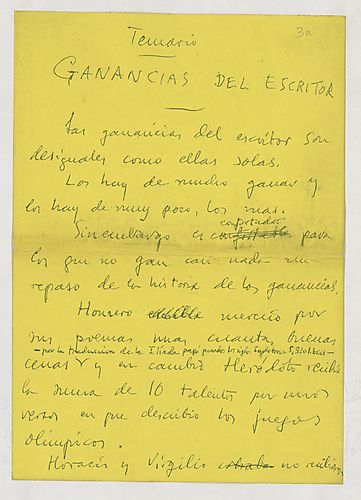 3a
Temario
GANANCIAS DEL ESCRITOR
Las ganancias del escritor son
desiguales como ellas solas.
Los hay de mucho ganar y
los hay de muy poco, los mas.
confortador
Sin embargo es confortable para
los que no gan casi nada un
repaso de la historia de las ganancias.
Homero mereció por
sus poemas muy cuanta buenas
—por la traduccion de la Iliada pagó
cenas y en cambio Herodoto recibio
la suma de 10 talentos por unos
versos en que describio los juegos
olimpicos.
Horacio y Virgilio no recibieron